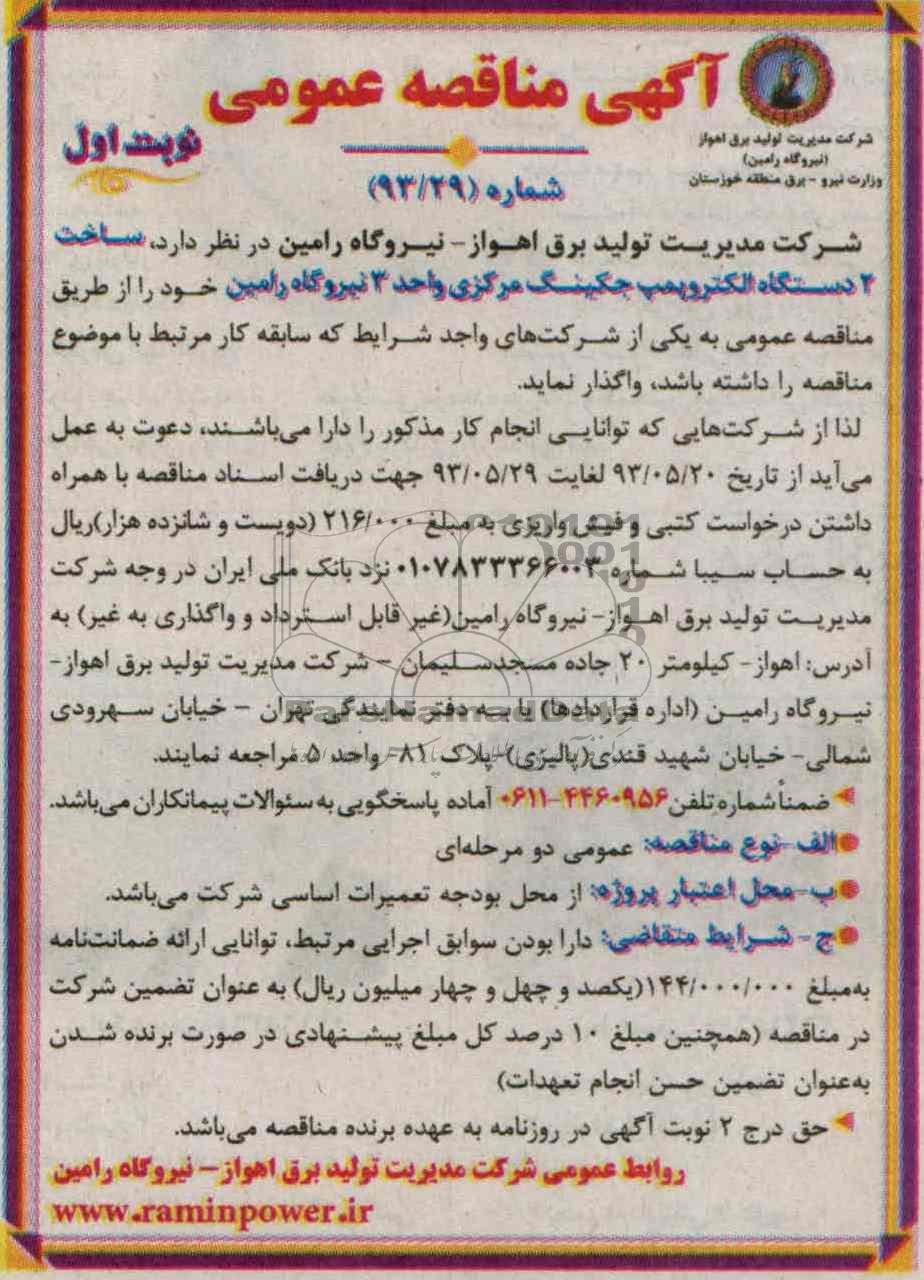 آگهی مناقصه عمومی
نوبت اول
شماره (۹۳/۲۹)
شرکت مدیریت تولید برق اهواز
(نیروگاه رامین)
وزارت نیرو - برق منطقه خوزستان
شرکت مدیریت تولید برق اهواز- نیروگاه رامین در نظر دارد، ساخت
۲ دستگاه الکتروپمپ جکینگ مرکزی واحد ۳ نیروگاه رامین خود را از طریق
مناقصه عمومی به یکی از شرکت‌های واجد شرایط که سابقه کار مرتبط با موضوع
مناقصه را داشته باشد، واگذار نماید.
لذا از شرکت‌هایی که توانایی انجام کار مذکور را دارا می‌باشند، دعوت به عمل
می‌آید از تاریخ ۹۳/۰۵/۲۰ لغایت ۹۳/۰۵/۲۹ جهت دریافت اسناد مناقصه با همراه
داشتن درخواست کتبی و فیش واریزی به مبلغ ۲۱۶/۰۰۰ (دویست و شانزده هزار)ریال
به حساب سیبا شماره ۰۱۰۷۸۳۳۳۶۶۰۰۳ نزد بانک ملی ایران در وجه شرکت
مدیریت تولید برق اهواز- نیروگاه رامین(غیر قابل استرداد و واگذاری به غیر) به
آدرس: اهواز- کیلومتر ۲۰ جاده مسجدسلیمان - شرکت مدیریت تولید برق اهواز-
نیروگاه رامین (اداره قراردادها) یا به دفتر نمایندگی تهران - خیابان سهرودی
شمالی- خیابان شهید قندی(پالیزی)- پلاک ۸۱- واحد ۵ مراجعه نمایند.
ضمناً شماره تلفن ۴۴۶۰۹۵۶-۰۶۱۱ آماده پاسخگویی به سئوالات پیمانکاران می‌باشد.
الف-نوع مناقصه: عمومی دو مرحله‌ای
ب-محل اعتبار پروژه: از محل بودجه تعمیرات اساسی شرکت می‌باشد.
ج- شرایط متقاضی: دارا بودن سوابق اجرایی مرتبط، توانایی ارائه ضمانت‌نامه
به‌مبلغ ۱۴۴/۰۰۰/۰۰۰(یکصد و چهل و چهار میلیون ریال) به عنوان تضمین شرکت
در مناقصه (همچنین مبلغ ۱۰ درصد کل مبلغ پیشنهادی در صورت برنده شدن
به‌عنوان تضمین حسن انجام تعهدات)
حق درج ۲ نوبت آگهی در روزنامه به عهده برنده مناقصه می‌باشد.
روابط عمومی شرکت مدیریت تولید برق اهواز- نیروگاه رامین
www.raminpower.ir